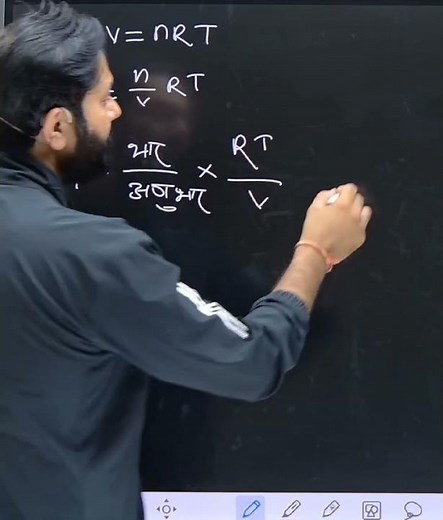 V = nRT
= n/V RT
भार/अणुभार × RT/V